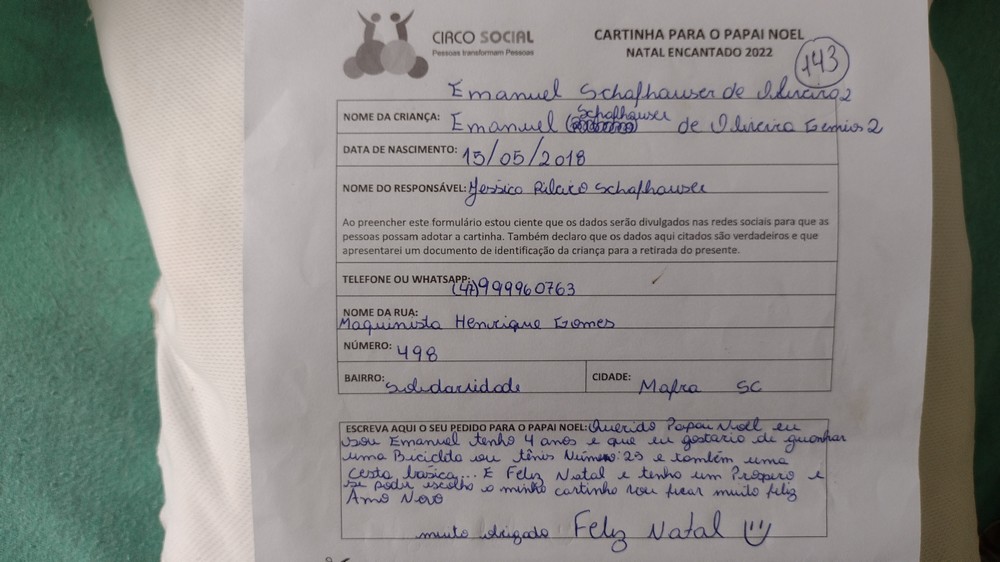 CIRCO SOCIAL
Pessoas transformam Pessoas
CARTINHA PARA O PAPAI NOEL
NATAL ENCANTADO 2022
143
Emanuel Schafhauser de Oliveira 2
NOME DA CRIANÇA: Emanuel Schafhauser de Oliveira Gemios 2
DATA DE NASCIMENTO: 15/05/2018
NOME DO RESPONSÁVEL: Jessica Ribeiro Schafhauser
Ao preencher este formulário estou ciente que os dados serão divulgados nas redes sociais para que as
pessoas possam adotar a cartinha. Também declaro que os dados aqui citados são verdadeiros e que
apresentarei um documento de identificação da criança para a retirada do presente.
TELEFONE OU WHATSAPP: (47)999960763
NOME DA RUA:
Maquinista Henrique Gomes
NÚMERO: 498
BAIRRO: Solidariedade CIDADE: Mafra SC
ESCREVA AQUI O SEU PEDIDO PARA O PAPAI NOEL: Querido Papai Noel eu
sou Emanuel tenho 4 anos e que eu gostario de guanhar
uma Bicicleta ou tênis Número: 29 e também uma
cesta básica... E Feliz Natal e tenho um Prospero e
se poder escolho o minho cartinho vou ficar muito feliz
Amo Novo
muito obrigado Feliz Natal